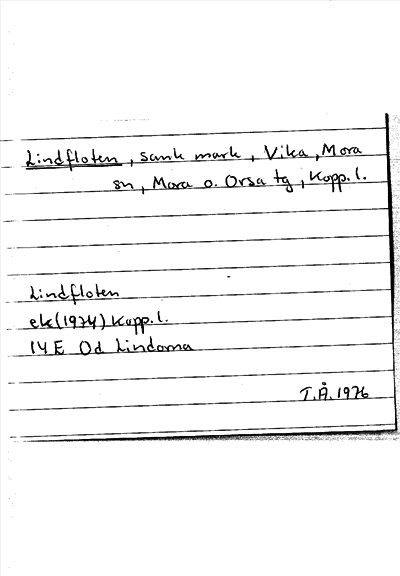 Lindfloten, sank mark, Vika, Mora
sn, Mora o. Orsa tg, Kopp. l.
Lindfloten
ek (1974) Kopp. l.
14E Od Lindorna
T.Å. 1976